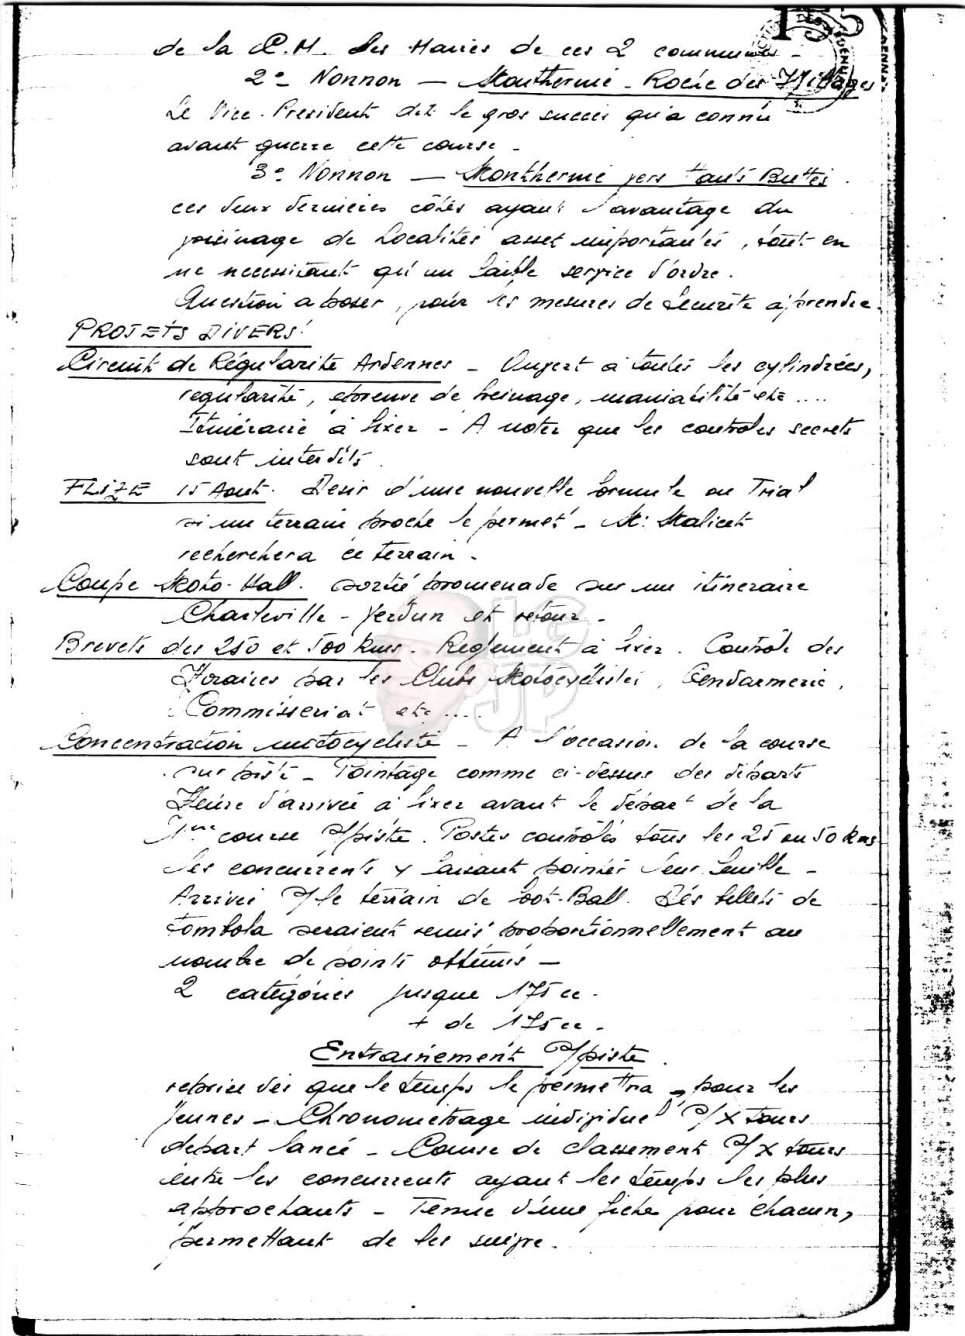 155
de la C.M. des Maires de ces 2 communes -
2e Nonnon — Monthermé - Roche des 7 Villages
Le Vice-Président dit le gros succès qu'a connu
avant guerre cette course -
3e Nonnon — Monthermé vers Hauts Buttés.
ces deux dernières côtes ayant l'avantage du
voisinage de Localités assez importantes, tout en
ne necessitant qu'un faible service d'ordre.
Question a poser, pour les mesures de Sécurité à prendre.
PROJETS DIVERS:
Circuit de Régularité Ardennes - Ouvert à toutes les cylindrées,
regularité, épreuve de freinage, maniabilité etc....
Itinéraire à fixer - A noter que les controles secrets
sont interdits.
FLIZE 15 Aout. Desir d'une nouvelle formule ou Trial
si un terrain proche le permet - M. Malicet
recherchera ce terrain -
Coupe Moto-Hall. sortie promenade sur un itinéraire
Charleville - Verdun et retour -
Brevets des 250 et 500 kms. Reglement à fixer. Contrôle des
Horaires par les Clubs Motocyclistes, Gendarmerie,
Commissariat etc....
LCJP
Concentration motocycliste - A l'occasion de la course
sur piste - Pointage comme ci-dessus des départs
Heure d'arrivée à fixer avant le départ de la
1ere course s/piste. Postes contrôles tous les 25 ou 50 kms
les concurrents y faisant pointer leur feuille -
Arrivée s/le terrain de Foot-Ball. Des billets de
tombola seraient remis proportionnellement au
nombre de points obtenus —
2 catégories jusque 175cc.
+ de 175cc.
Entrainement s/piste.
reprise dès que le temps le permettra - pour les
jeunes - Chronométrage individuel s/X tours
départ lancé - Course de classement s/X tours
entre les concurrents ayant les temps les plus
approchants - Tenue d'une fiche pour chacun,
permettant de les suivre.